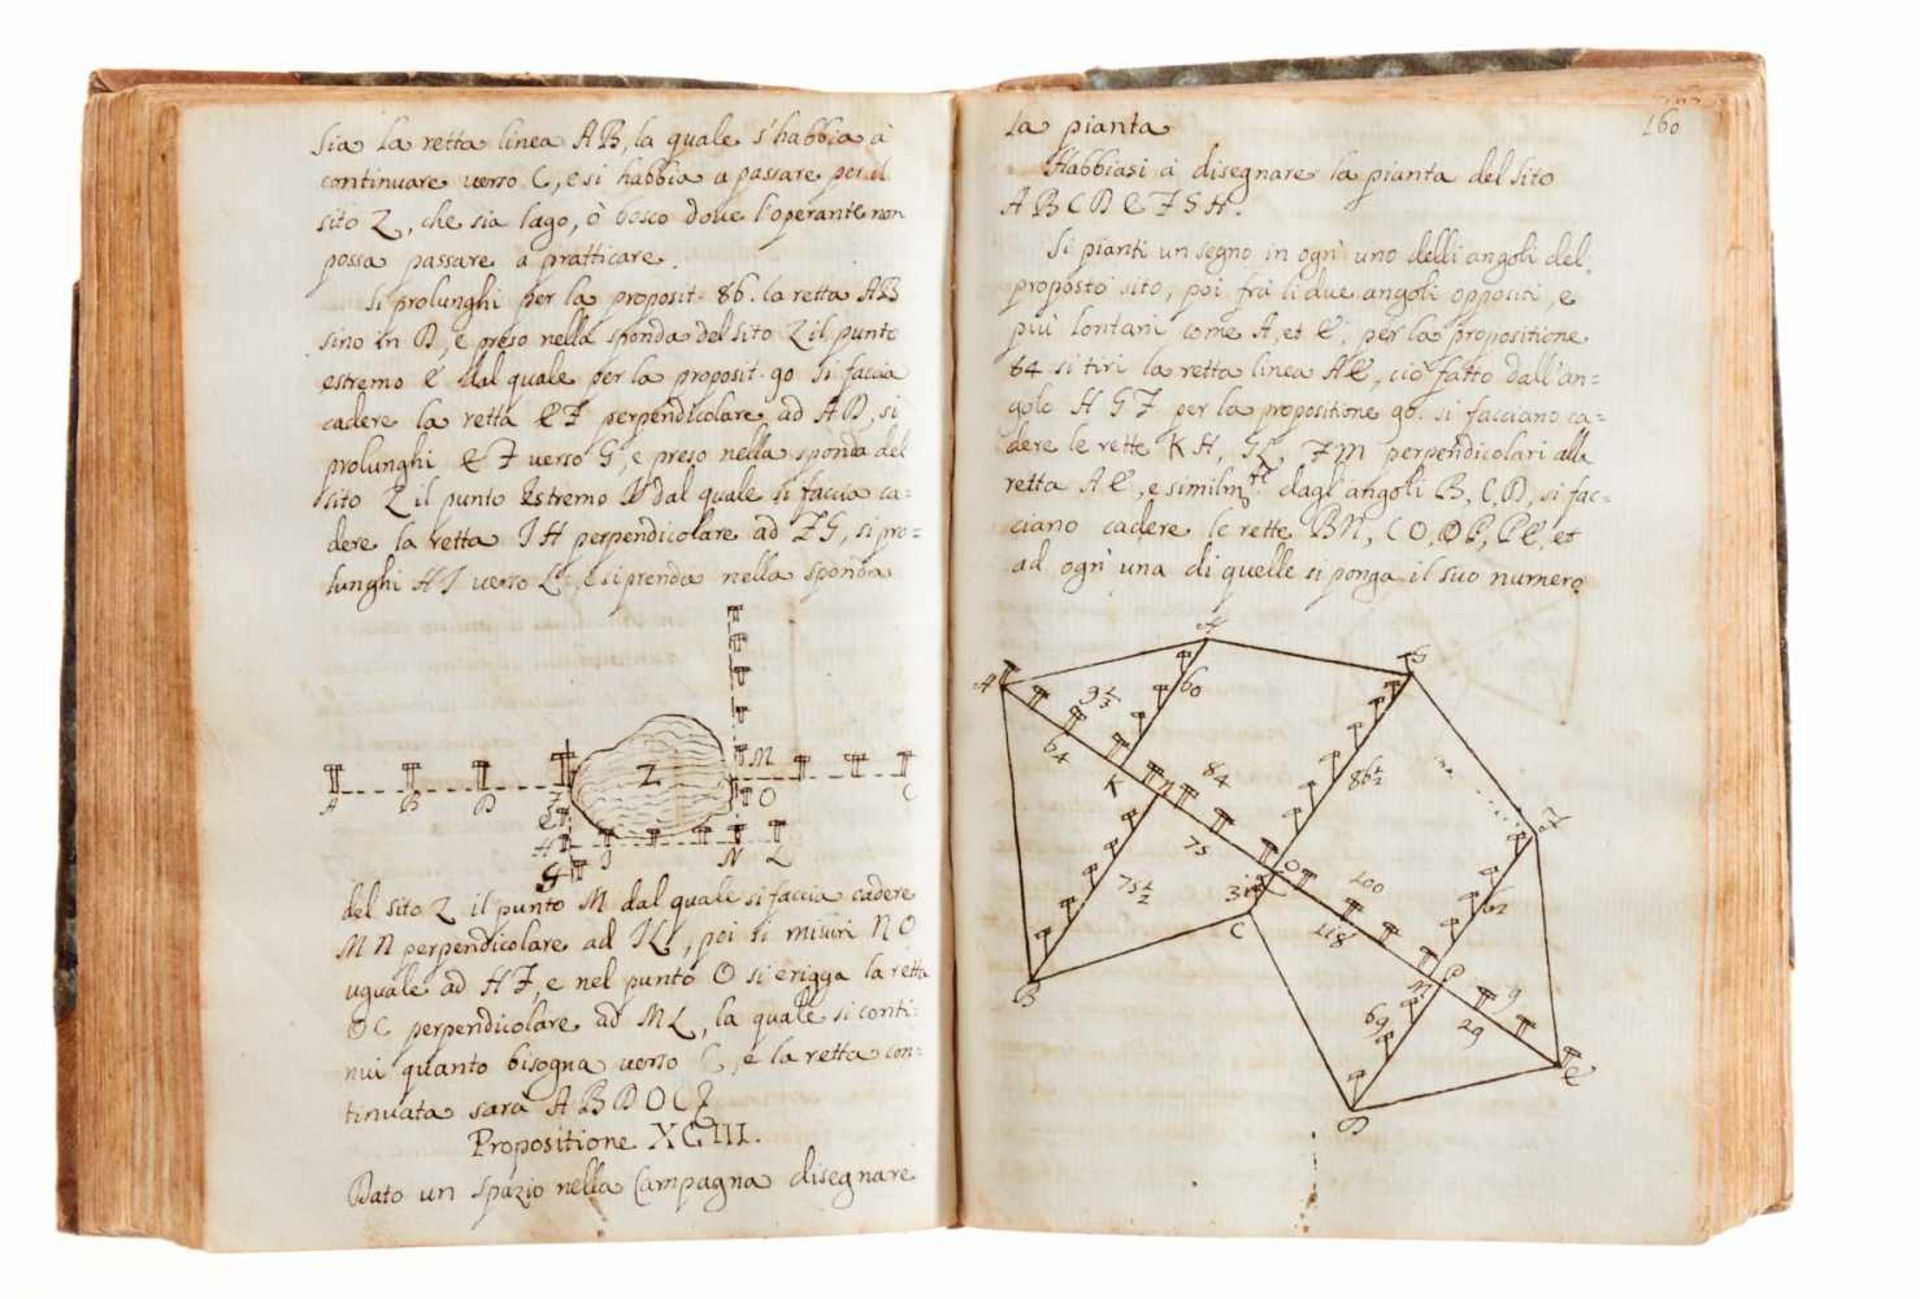 Sia la retta linea AB, la quale s'habbia à
continuare verso C, e si habbia a passare per il
sito Z, che sia lago, ò bosco doue l'operante non
possa passare a pratticare.
Si prolunghi per la proposit. 86. la retta AB
sino in D, e preso nella sponda del sito Z il punto
estremo E dal quale per la proposit. 90 si faccia
cadere la retta EF perpendicolare ad AD, si
prolunghi EF verso G, e preso nella sponda del
sito Z il punto Estremo dal quale si faccia ca=
dere la retta IH perpendicolare ad FG, si pro=
lunghi HI verso L, e si prenda nella sponda
Z
M
A B D F O C
E
H I N L
G
del sito Z il punto M dal quale si faccia cadere
MN perpendicolare ad IL, poi si misuri NO
uguale ad HF, e nel punto O si erigga la retta
OC perpendicolare ad ML, la quale si conti=
nui quanto bisogna verso C, e la retta con=
tinuata sarà ABDOC
Propositione XCIII.
Dato un spazio nella Campagna disegnare
160
la pianta
Habbiasi à disegnare la pianta del sito
ABCDEFGH.
Si pianti un segno in ogni uno delli angoli del
proposto sito, poi frà li due angoli oppositi, e
più lontani come A, et E, per la propositione
64 si tiri la retta linea AE, ciò fatto dall'an=
golo HGF per la propositione 90. si facciano ca=
dere le rette KH, GL, FM perpendicolari alla
retta AE, e similmte dagl'angoli B, C, D, si fac=
ciano cadere le rette BN, CO, DP, PE, et
ad ogni una di quelle si ponga il suo numero
H
A G
9 1/3 60
64 K 84 86 1/2
N
75 F
75 1/2 31 O L 100 62
C 118
B P
M 9
69 29
E
D